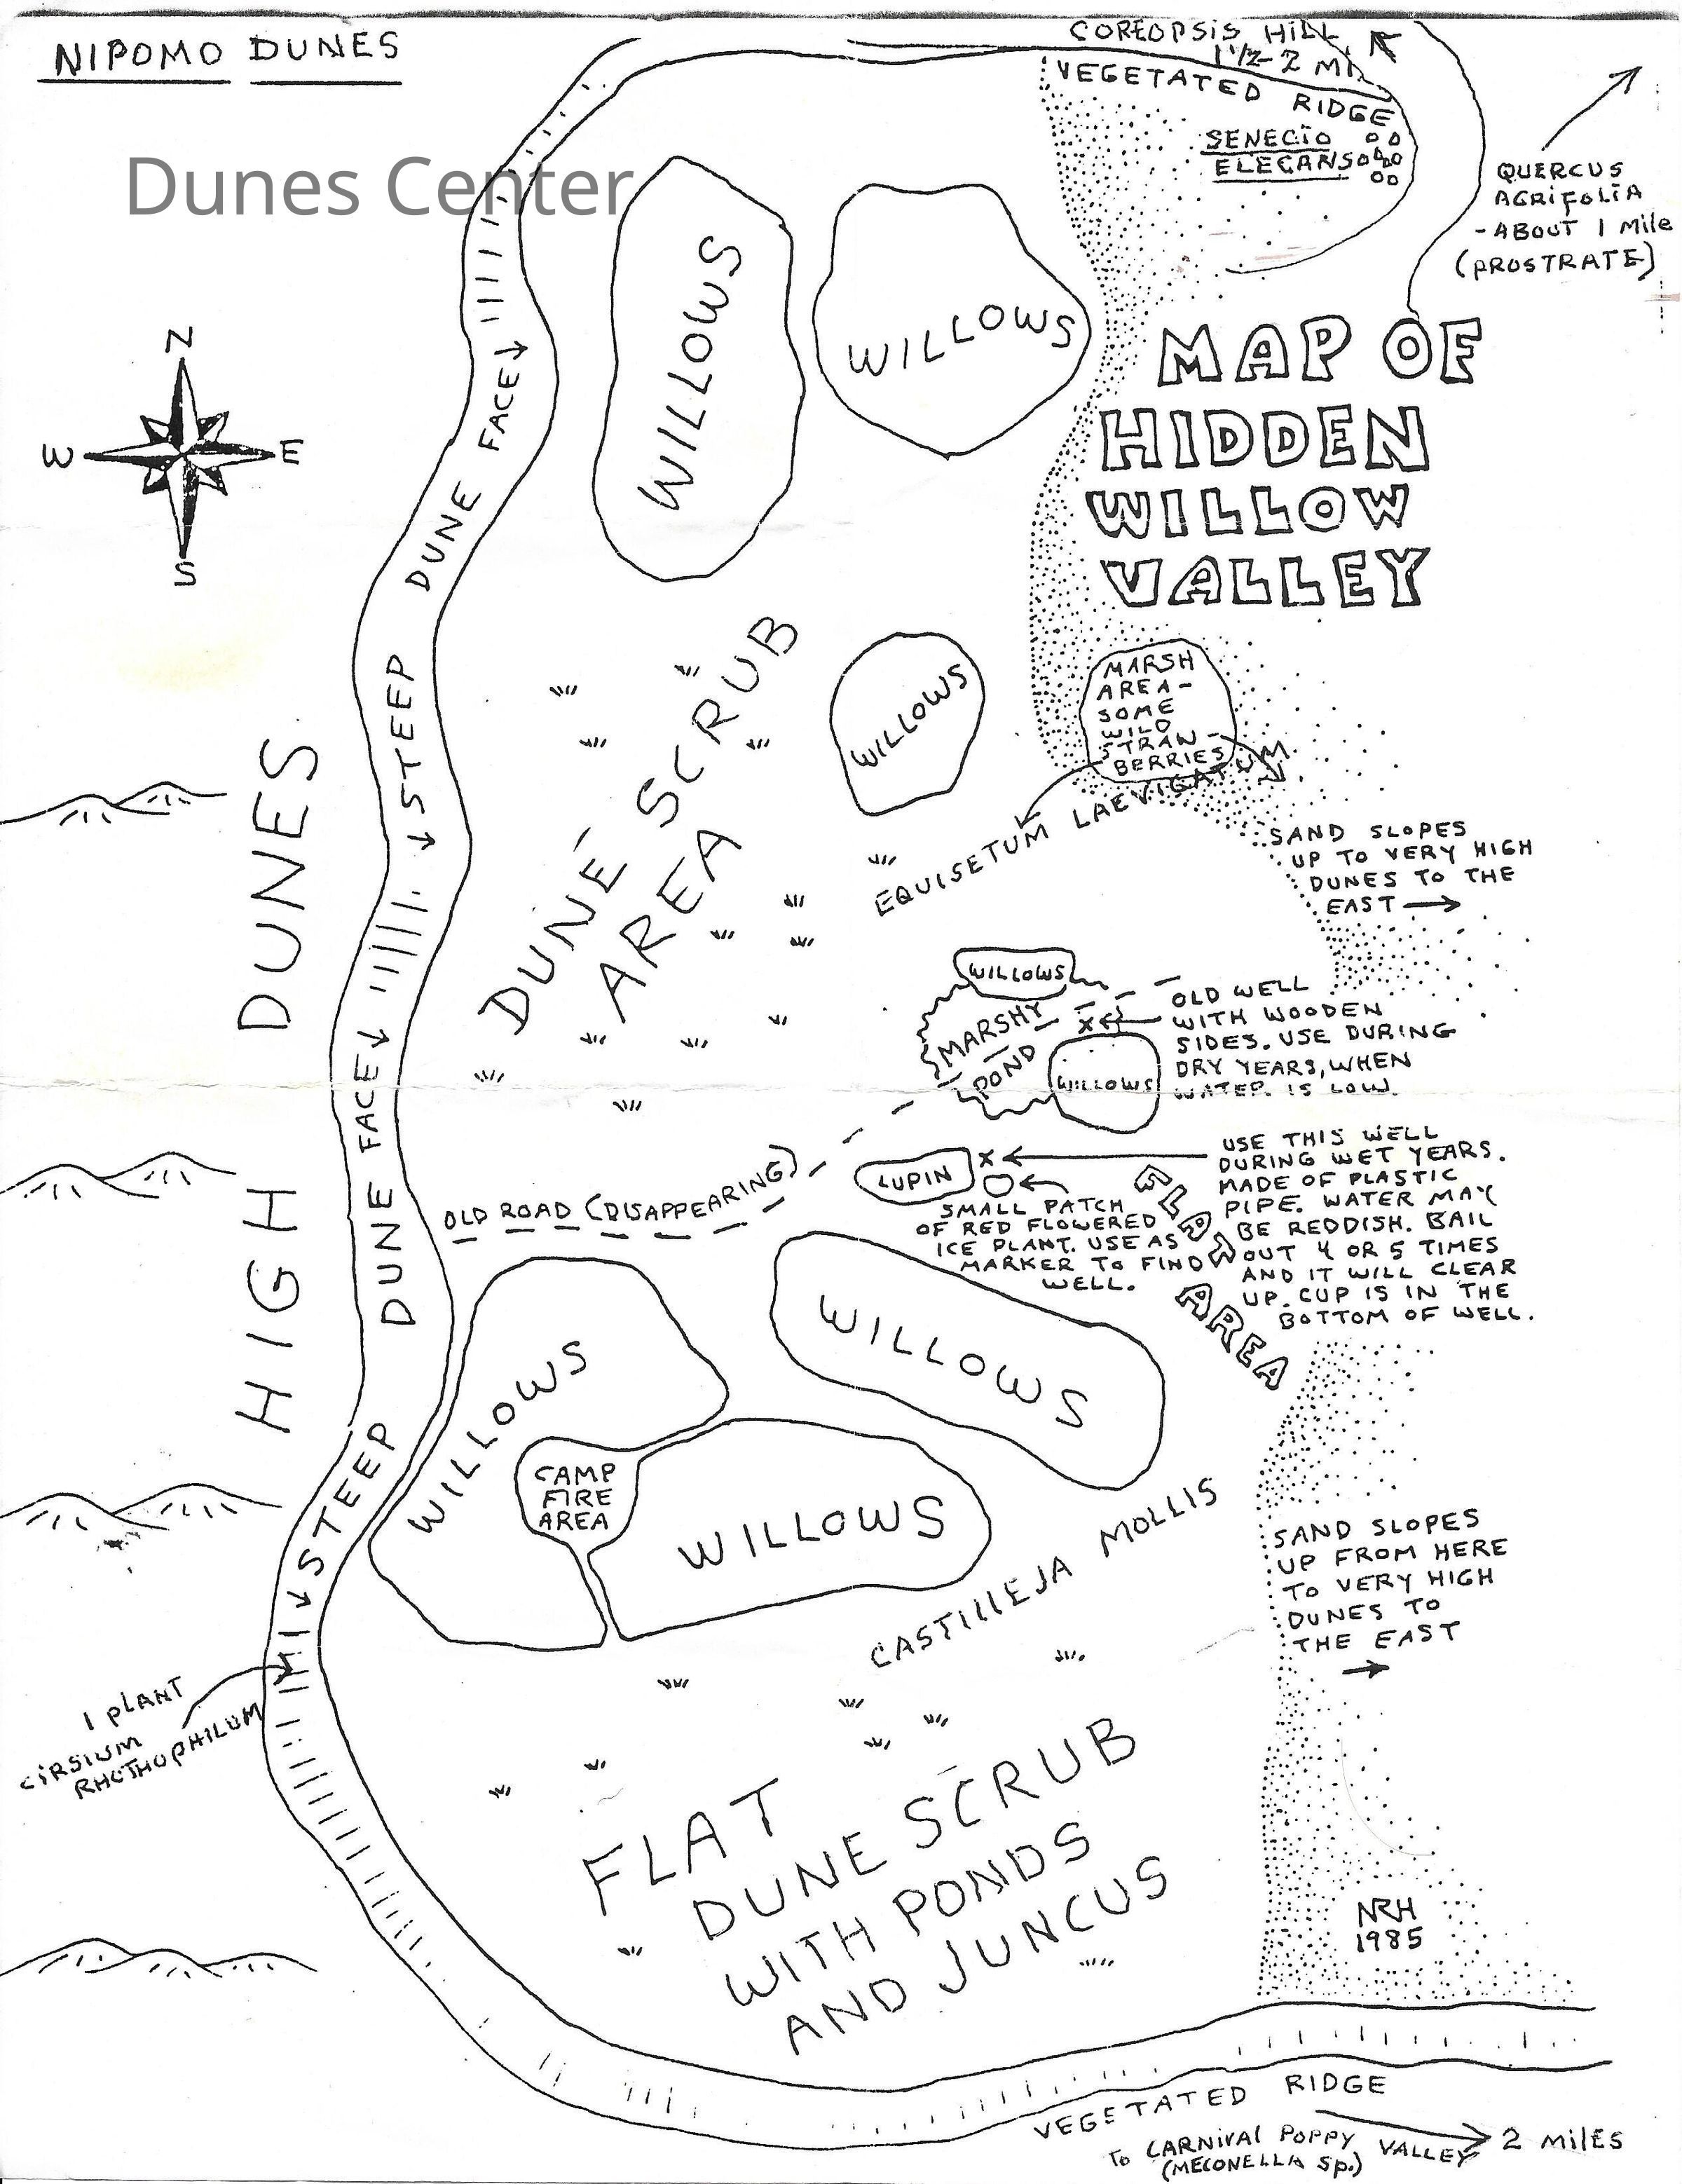 NIPOMO DUNES
Dunes Center
COREOPSIS HILL
1 1/2-2 MI.
VEGETATED RIDGE
SENECIO
ELEGANS
QUERCUS
AGRIFOLIA
-ABOUT 1 MILE
(PROSTRATE)
N
W E
S
MAP OF
HIDDEN
WILLOW
VALLEY
WILLOWS
WILLOWS
WILLOWS
MARSH
AREA-
SOME
WILD
STRAW-
BERRIES
EQUISETUM LAEVIGATUM
SAND SLOPES
UP TO VERY HIGH
DUNES TO THE
EAST
DUNE SCRUB
AREA
HIGH DUNES
STEEP DUNE FACE
STEEP DUNE FACE
STEEP
WILLOWS
MARSHY
POND
WILLOWS
OLD WELL
WITH WOODEN
SIDES. USE DURING
DRY YEARS, WHEN
WATER. IS LOW.
OLD ROAD (DISAPPEARING)
LUPIN
X
X
USE THIS WELL
DURING WET YEARS.
MADE OF PLASTIC
PIPE. WATER MAY
BE REDDISH. BAIL
OUT 4 OR 5 TIMES
AND IT WILL CLEAR
UP. CUP IS IN THE
BOTTOM OF WELL.
SMALL PATCH
OF RED FLOWERED
ICE PLANT. USE AS
MARKER TO FIND
WELL.
AREA
WILLOWS
WILLOWS
CAMP
FIRE
AREA
WILLOWS
CASTILLEJA MOLLIS
SAND SLOPES
UP FROM HERE
TO VERY HIGH
DUNES TO
THE EAST
1 PLANT
CIRSIUM
RHOTHOPHILUM
FLAT
DUNE SCRUB
WITH PONDS
AND JUNCUS
NRH
1985
VEGETATED RIDGE
TO CARNIVAL POPPY VALLEY 2 MILES
(MECONELLA SP.)